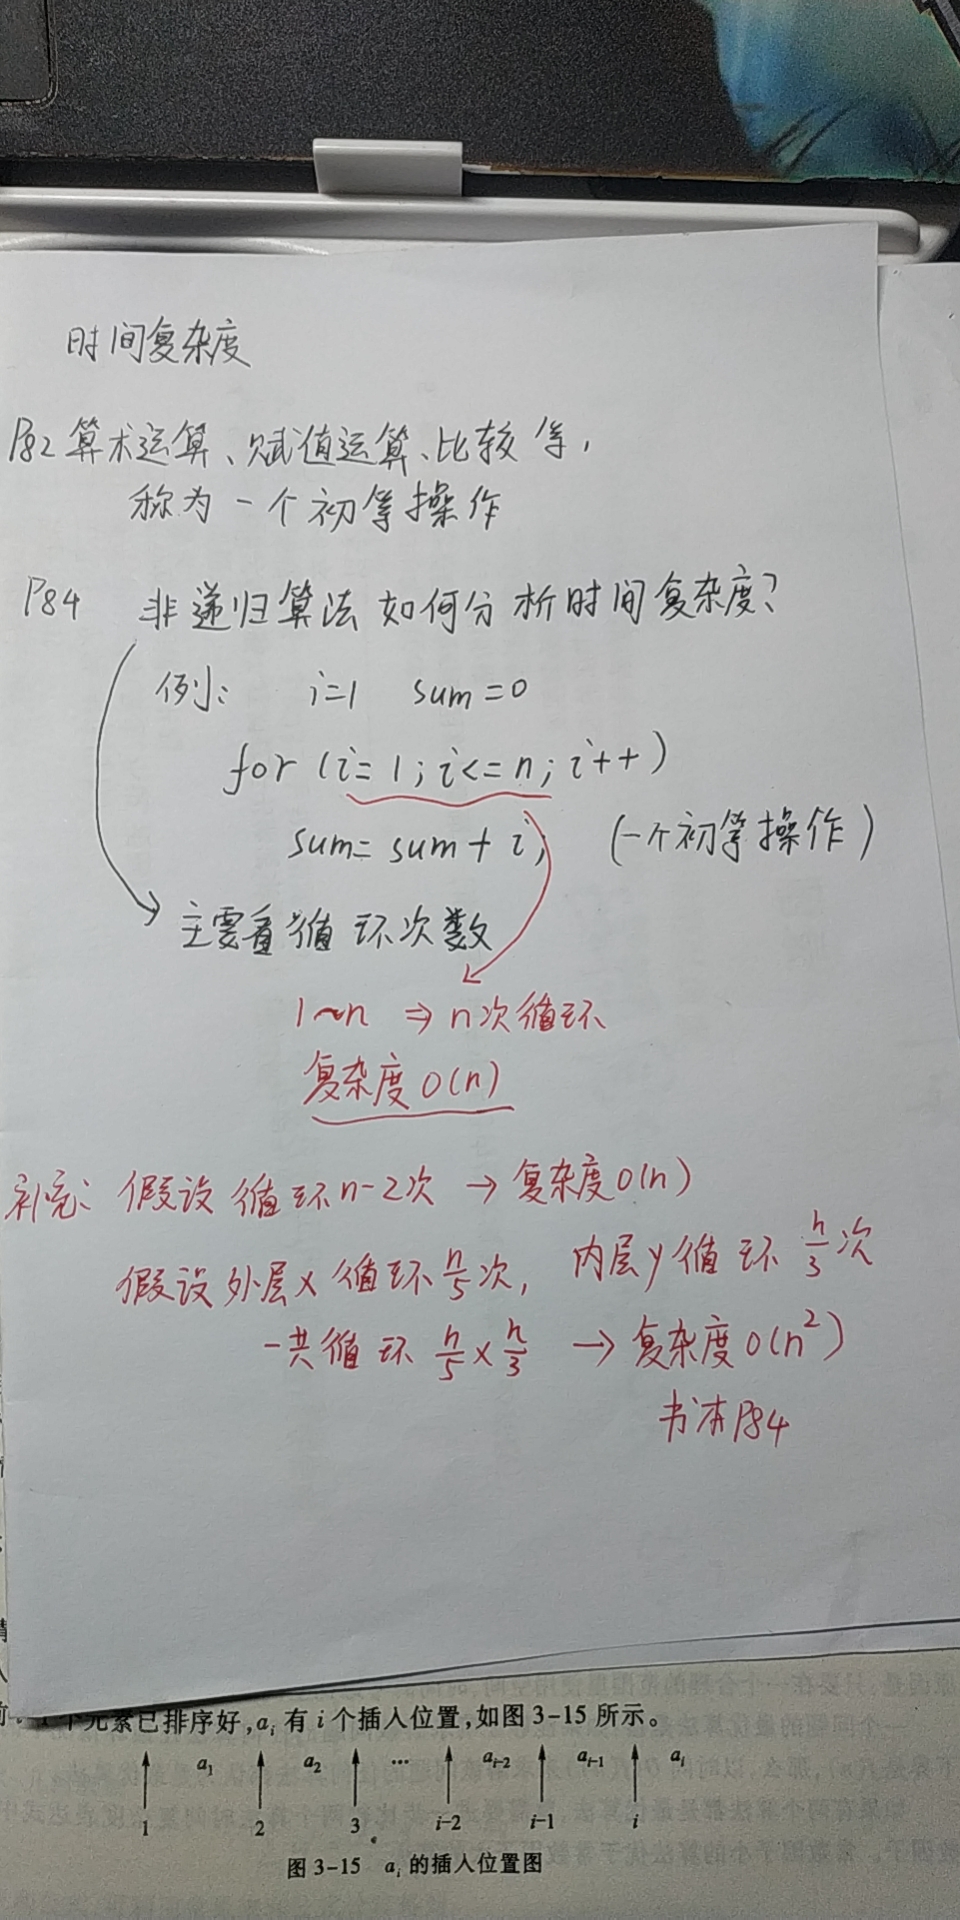 时间复杂度
P82 算术运算、赋值运算、比较等,
称为一个初等操作
P84 非递归算法如何分析时间复杂度?
例: i=1 sum=0
for (i=1; i<=n; i++)
sum= sum+ i; (一个初等操作)
主要看循环次数
1~n ⇒ n次循环
复杂度O(n)
补充: 假设循环n-2次 → 复杂度O(n)
假设外层x循环n/5次, 内层y循环n/3次
一共循环 n/5 × n/3 → 复杂度O(n²)
书本P84
个元素已排序好,aᵢ 有 i 个插入位置,如图 3-15 所示。
a₁ a₂ … aᵢ₋₂ aᵢ₋₁ aᵢ
1 2 3 i-2 i-1 i
图 3-15 aᵢ 的插入位置图